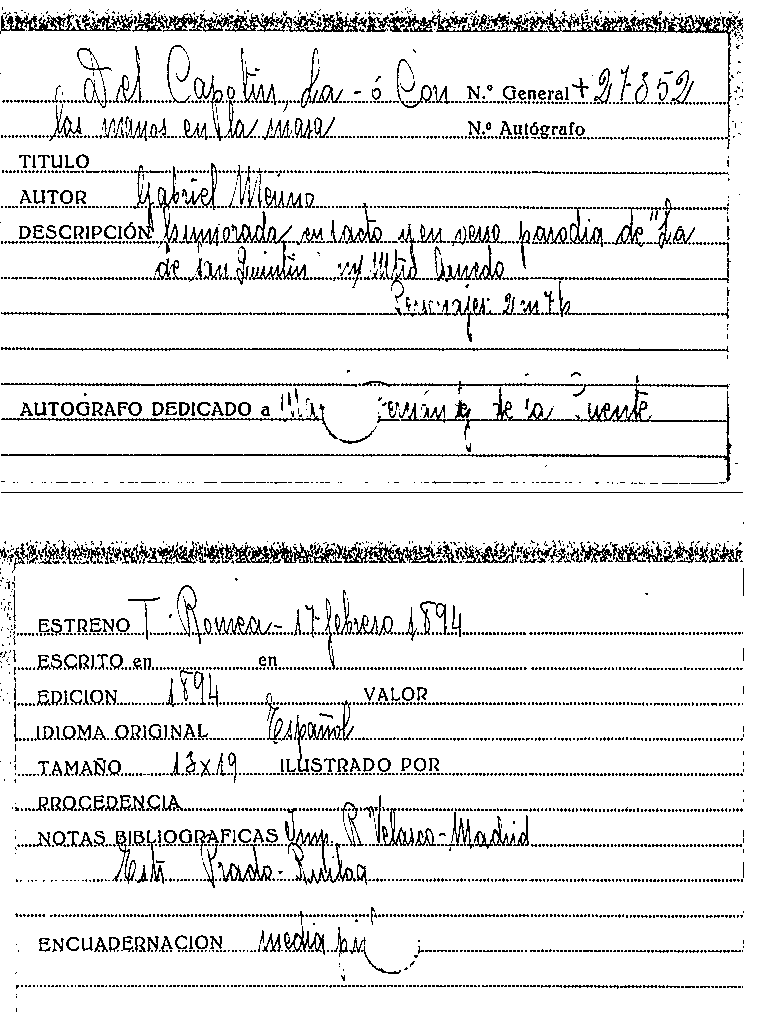 Del Capotin, La - ó Con N.º General + 27852
las manos en la masa N.º Autógrafo
TITULO
AUTOR Gabriel Merino
DESCRIPCIÓN humorada en 1 acto y en verso parodia de "La
de San Quintin" m/ Mtro Arnedo
Personajes: 2 m 7 h
AUTOGRAFO DEDICADO a de la Puente
ESTRENO T. Romea - 17 febrero 1894
ESCRITO en en
EDICION 1894 VALOR
IDIOMA ORIGINAL Español
TAMAÑO 13x19 ILUSTRADO POR
PROCEDENCIA
NOTAS BIBLIOGRAFICAS Imp. R Velasco - Madrid
Prado -
ENCUADERNACION media